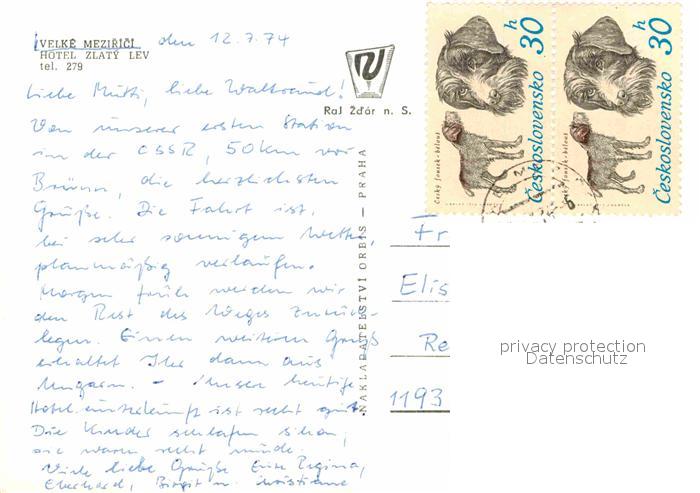 VELKÉ MEZIŘÍČÍ den 12.7.74
HOTEL ZLATÝ LEV
tel. 279
Raj Žďár n. S.
Liebe Mutti, liebe Waltraud!
Von unserer ersten Station
in der CSSR, 50 km vor
Brünn, die herzlichsten
Grüße. Die Fahrt ist,
bei sehr sonnigem Wetter,
planmäßig verlaufen.
Morgen früh werden wir
den Rest des Weges zurück-
legen. Einen weiteren Gruß
erhaltet Ihr dann aus
Ungarn. – Unser heutige
Hotelunterkunft ist recht gut.
Die Kinder schlafen schon,
sie waren recht müde.
Viele liebe Grüße Eure Regina,
Eberhard, Birgit u. Christiane
NAKLADATELSTVÍ ORBIS — PRAHA
30 h
Československo
Český fousek - bělouš
30 h
Československo
Český fousek - bělouš
Fr
Elis
Re
1193
privacy protection
Datenschutz